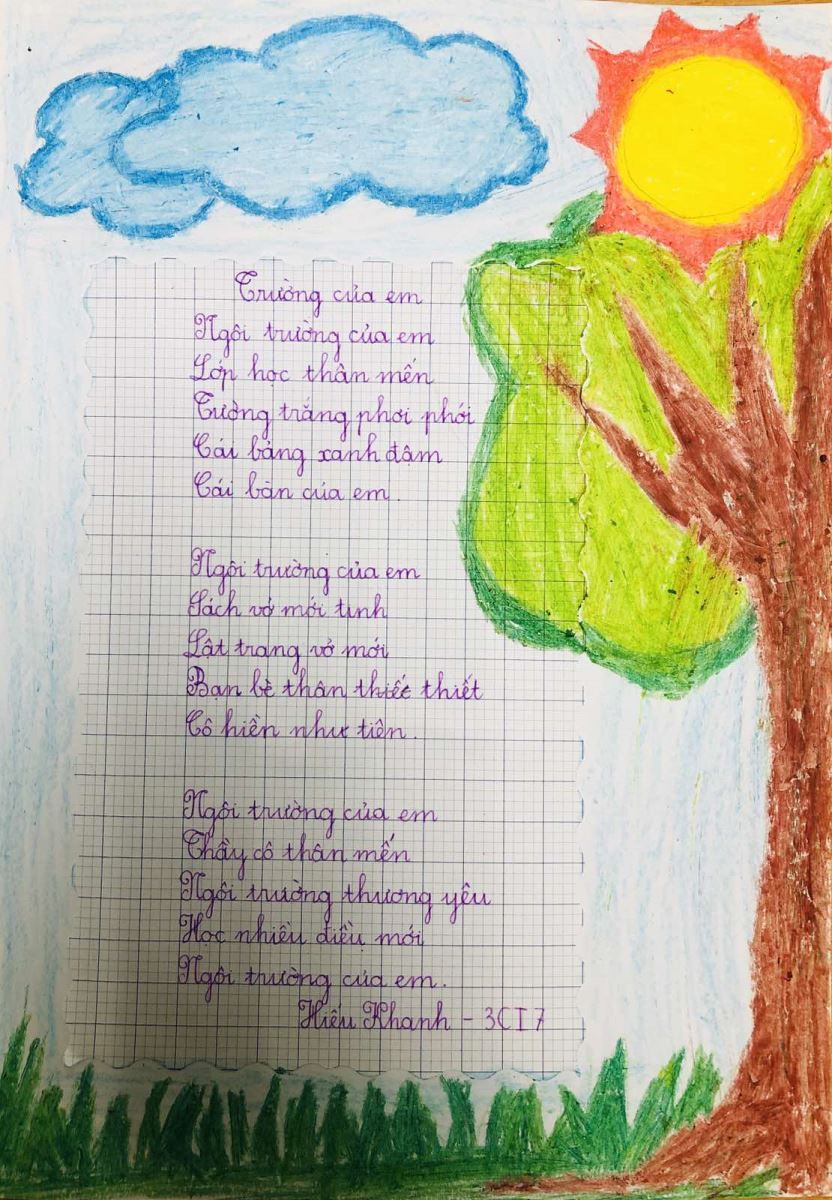 Trường của em
Ngôi trường của em
Lớp học thân mến
Tường trắng phơi phới
Cái bảng xanh đậm
Cái bàn của em.
Ngôi trường của em
Sách vở mới tinh
Lật trang vở mới
Bạn bè thân thiết thiết
Cô hiền như tiên.
Ngôi trường của em
Thầy cô thân mến
Ngôi trường thương yêu
Học nhiều điều mới
Ngôi trường của em.
Hiếu Khanh - 3CI7